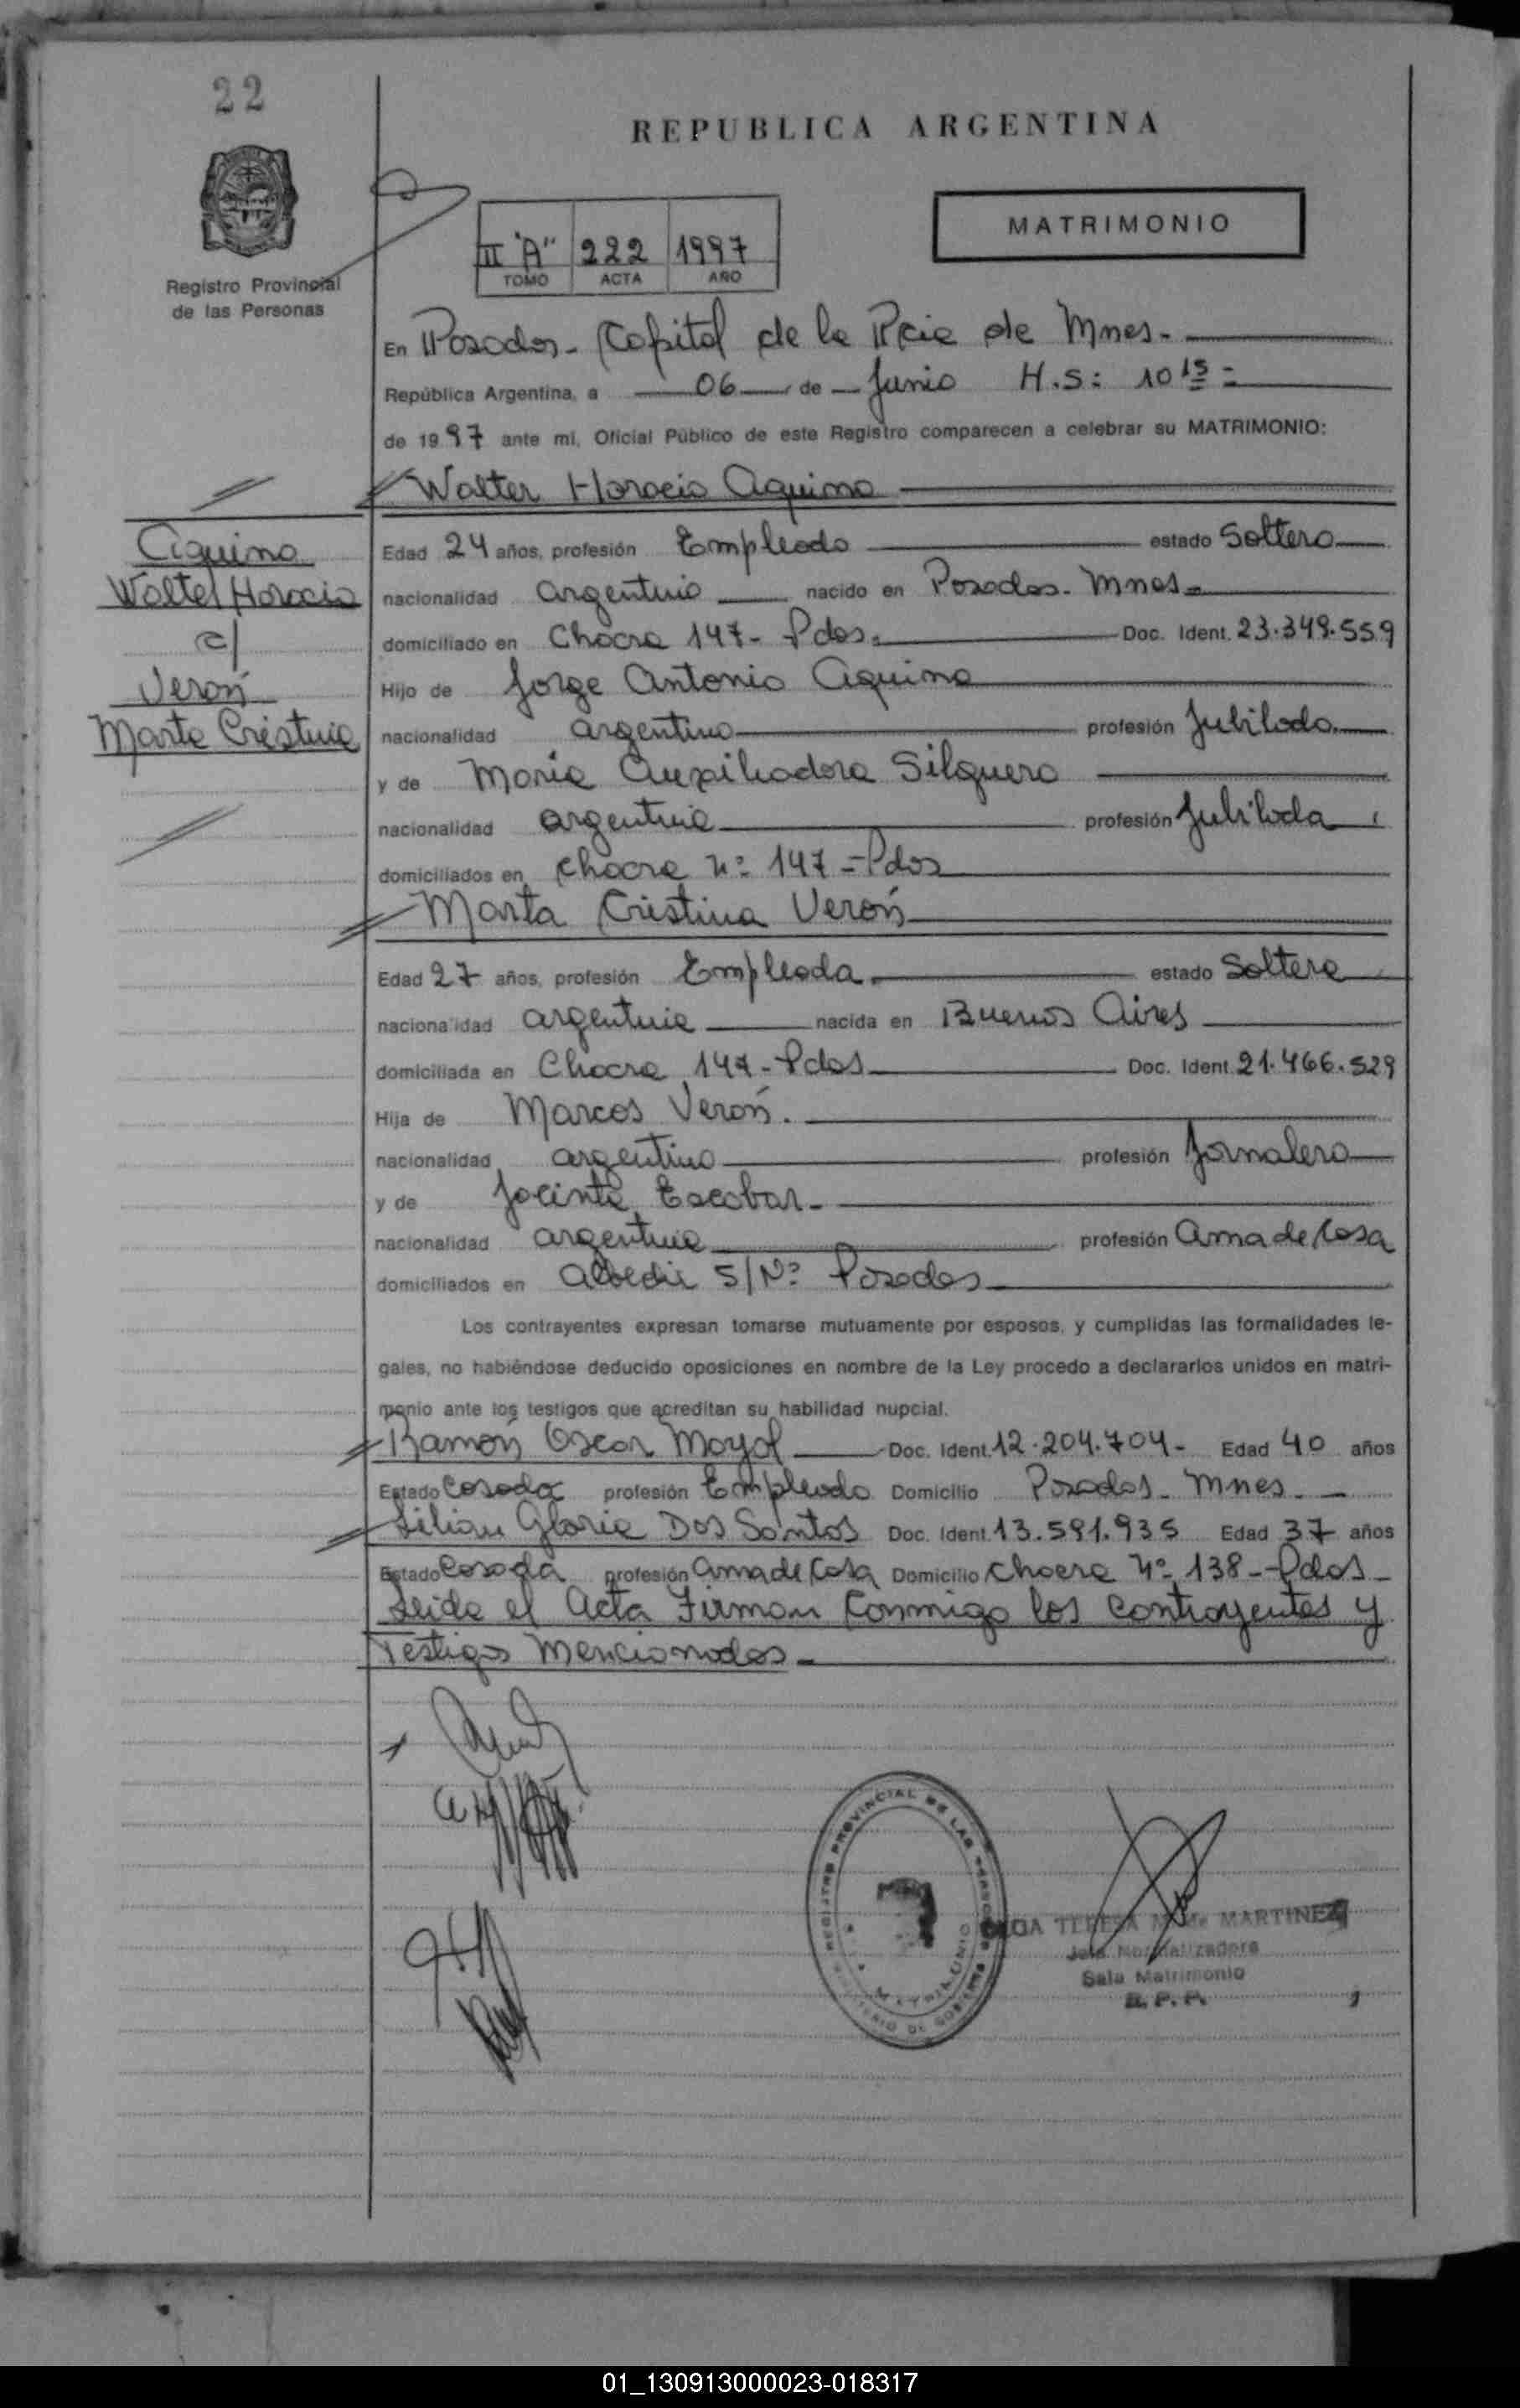 22
REPUBLICA ARGENTINA
MATRIMONIO
II "A" 222 1997
TOMO ACTA AÑO
Registro Provincial
de las Personas
En Posadas - Capital de la Pcia de Mnes.-
República Argentina, a 06 de Junio H.S: 10 15 =
de 1997 ante mi, Oficial Público de este Registro comparecen a celebrar su MATRIMONIO:
Walter Horacio Aquino
Aquino
Walter Horacio
c/
Verón
Marta Cristina
Edad 24 años, profesión Empleado estado Soltero
nacionalidad argentino nacido en Posadas - Mnes
domiciliado en Chacra 147 - Pdas. Doc. Ident. 23.349.559
Hijo de Jorge Antonio Aquino
nacionalidad argentino profesión Jubilado
y de María Auxiliadora Silguero
nacionalidad argentina profesión Jubilada
domiciliados en chacra nº 147 - Pdas
Marta Cristina Verón
Edad 27 años, profesión Empleada estado Soltera
nacionalidad argentina nacida en Buenos Aires
domiciliada en Chacra 147 - Pdas Doc. Ident. 21.466.529
Hija de Marcos Verón.
nacionalidad argentino profesión Jornalero
y de Jacinta Escobar-
nacionalidad argentina profesión Ama de Casa
domiciliados en S/Nº Posadas
Los contrayentes expresan tomarse mutuamente por esposos, y cumplidas las formalidades le-
gales, no habiéndose deducido oposiciones en nombre de la Ley procedo a declararlos unidos en matri-
monio ante los testigos que acreditan su habilidad nupcial.
Ramón Oscar Mayol Doc. Ident. 12.204.704- Edad 40 años
Estado Casado profesión Empleado Domicilio Posadas - Mnes.
Lilian Gloria Dos Santos Doc. Ident. 13.591.935 Edad 37 años
Estado Casada profesión Ama de Casa Domicilio Chacra nº 138 - Pdas
Leida el Acta Firman Conmigo los contrayentes y
Testigos Mencionados
REGISTRO PROVINCIAL DE LAS PERSONAS
MATRIMONIO
MINISTERIO DE GOBIERNO
TERESA M. de MARTINEZ
Jefa Normalizadora
Sala Matrimonio
R. P. P.
01_130913000023-018317